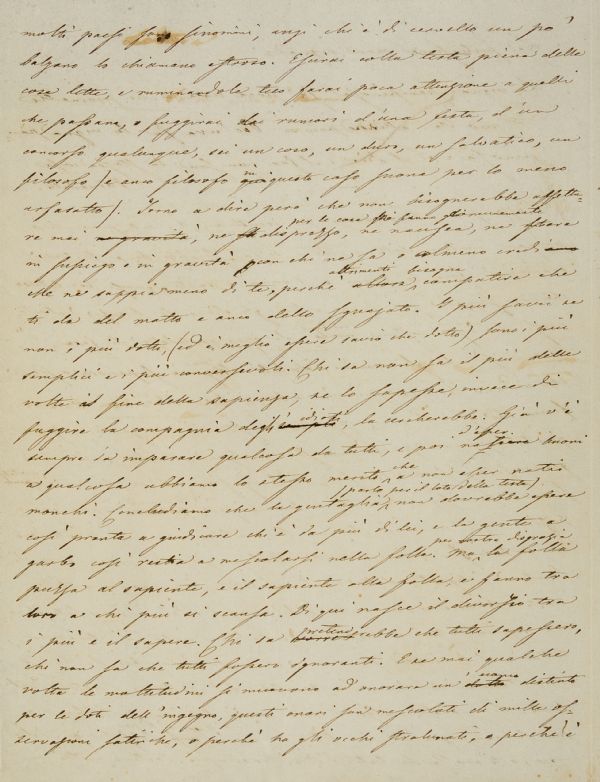 molti paesi sono sinonimi, anzi chi è di cervello un po'
balzano lo chiamano estroso. Escirai colla testa piena delle
cose lette, e ruminandole teco farai poca attenzione a quelli
che passano, o fuggirai dai rumori d'una festa, d'un
concorso qualunque, sei un orso, un duro, un salvatico, un
filosofo (e anco filosofo in questo caso suona per lo meno
arfasatto). Torno a dire però che non bisognerebbe affetta-
per le cose che fanno
re mai, nè disprezzo, nè nausea, nè stare
in sussiego e in gravità con chi ne sa o almeno credi
altrimenti bisogna
che ne sappia meno di te, perchè allora, compatire che
ti dà del matto e anco dello sguajato. I più savii se
non i più dotti, (ed è meglio essere savio che dotto) sono i più
semplici e i più conversevoli. Chi sa non fa il più delle
volte al fine della sapienza, se lo sapesse, invece di
fuggire la compagnia degli idioti, la cercherebbe. Già v'è
d'esser
sempre da imparare qualcosa da tutti, e poi se buoni
a qualcosa abbiamo lo stesso merito che a non esser natio
(parlo per il lato della testa)
monchi. Concludiamo che la non dovrebbe essere
così pronta a giudicare chi è da più di lei, e la gente a
per nostra disgrazia
garbo così restia a mescolarsi nella folla. Ma, la folla
puzza al sapiente, e il sapiente alla folla, e fanno tra
loro a chi più si scansa. Di qui nasce il divorzio tra
i più e il sapere. Chi sa che tutti sapessero,
chi non sa che tutti fossero ignoranti. E se mai qualche
uomo
volta le moltitudini si muovono ad onorare un dotto distinto
per le doti dell'ingegno, questi onori son mescolati di mille os-
servazioni satiriche, o perchè ha gli occhi stralunati, o perchè è